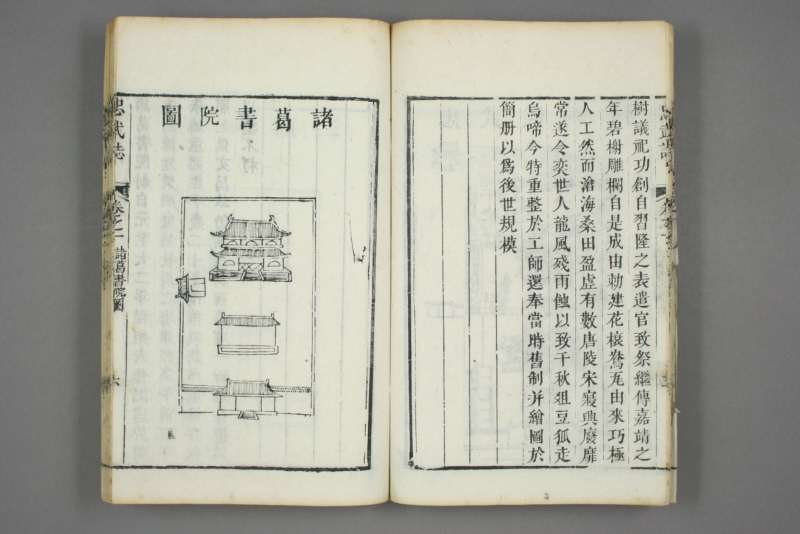 樹議祀功創自習隆之表遣官致祭繼傳嘉靖之
年碧榭雕欄自是成由勅建花榱鴛瓦由來巧極
人工然而滄海桑田盈虛有數唐陵宋寢興廢靡
常遂令奕世人龍風殘雨蝕以致千秋俎豆狐走
烏啼今特重整於工師選奉當時舊制并繪圖於
簡册以爲後世規模
諸葛書院圖
忠武誌
卷之一
諸葛書院圖
六